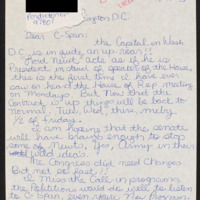 Pendleton Or
97801
Washington D.C.
Dear C-Span;
the Capital in Wash
D.C. is in quite an up rear!!
Lord Newt acts as if he is
President, instead of speaker of the House,
this is the first time I have ever
saw or heard the House of Rep meeting
on Mondays. But now that
Contract is up things will be back to
normal. Tues, Wed, Thurs, mabey
1/2 of Friday.
I am hopeing that the senate
will have brains enough to stop
some of Newts, Yes, Army in their
wild idea's.
The Congress did need Changes
But not so fast!!
I Miss the Call in programs
the Politicians would do well to listen
to C-Span, even your New Morning